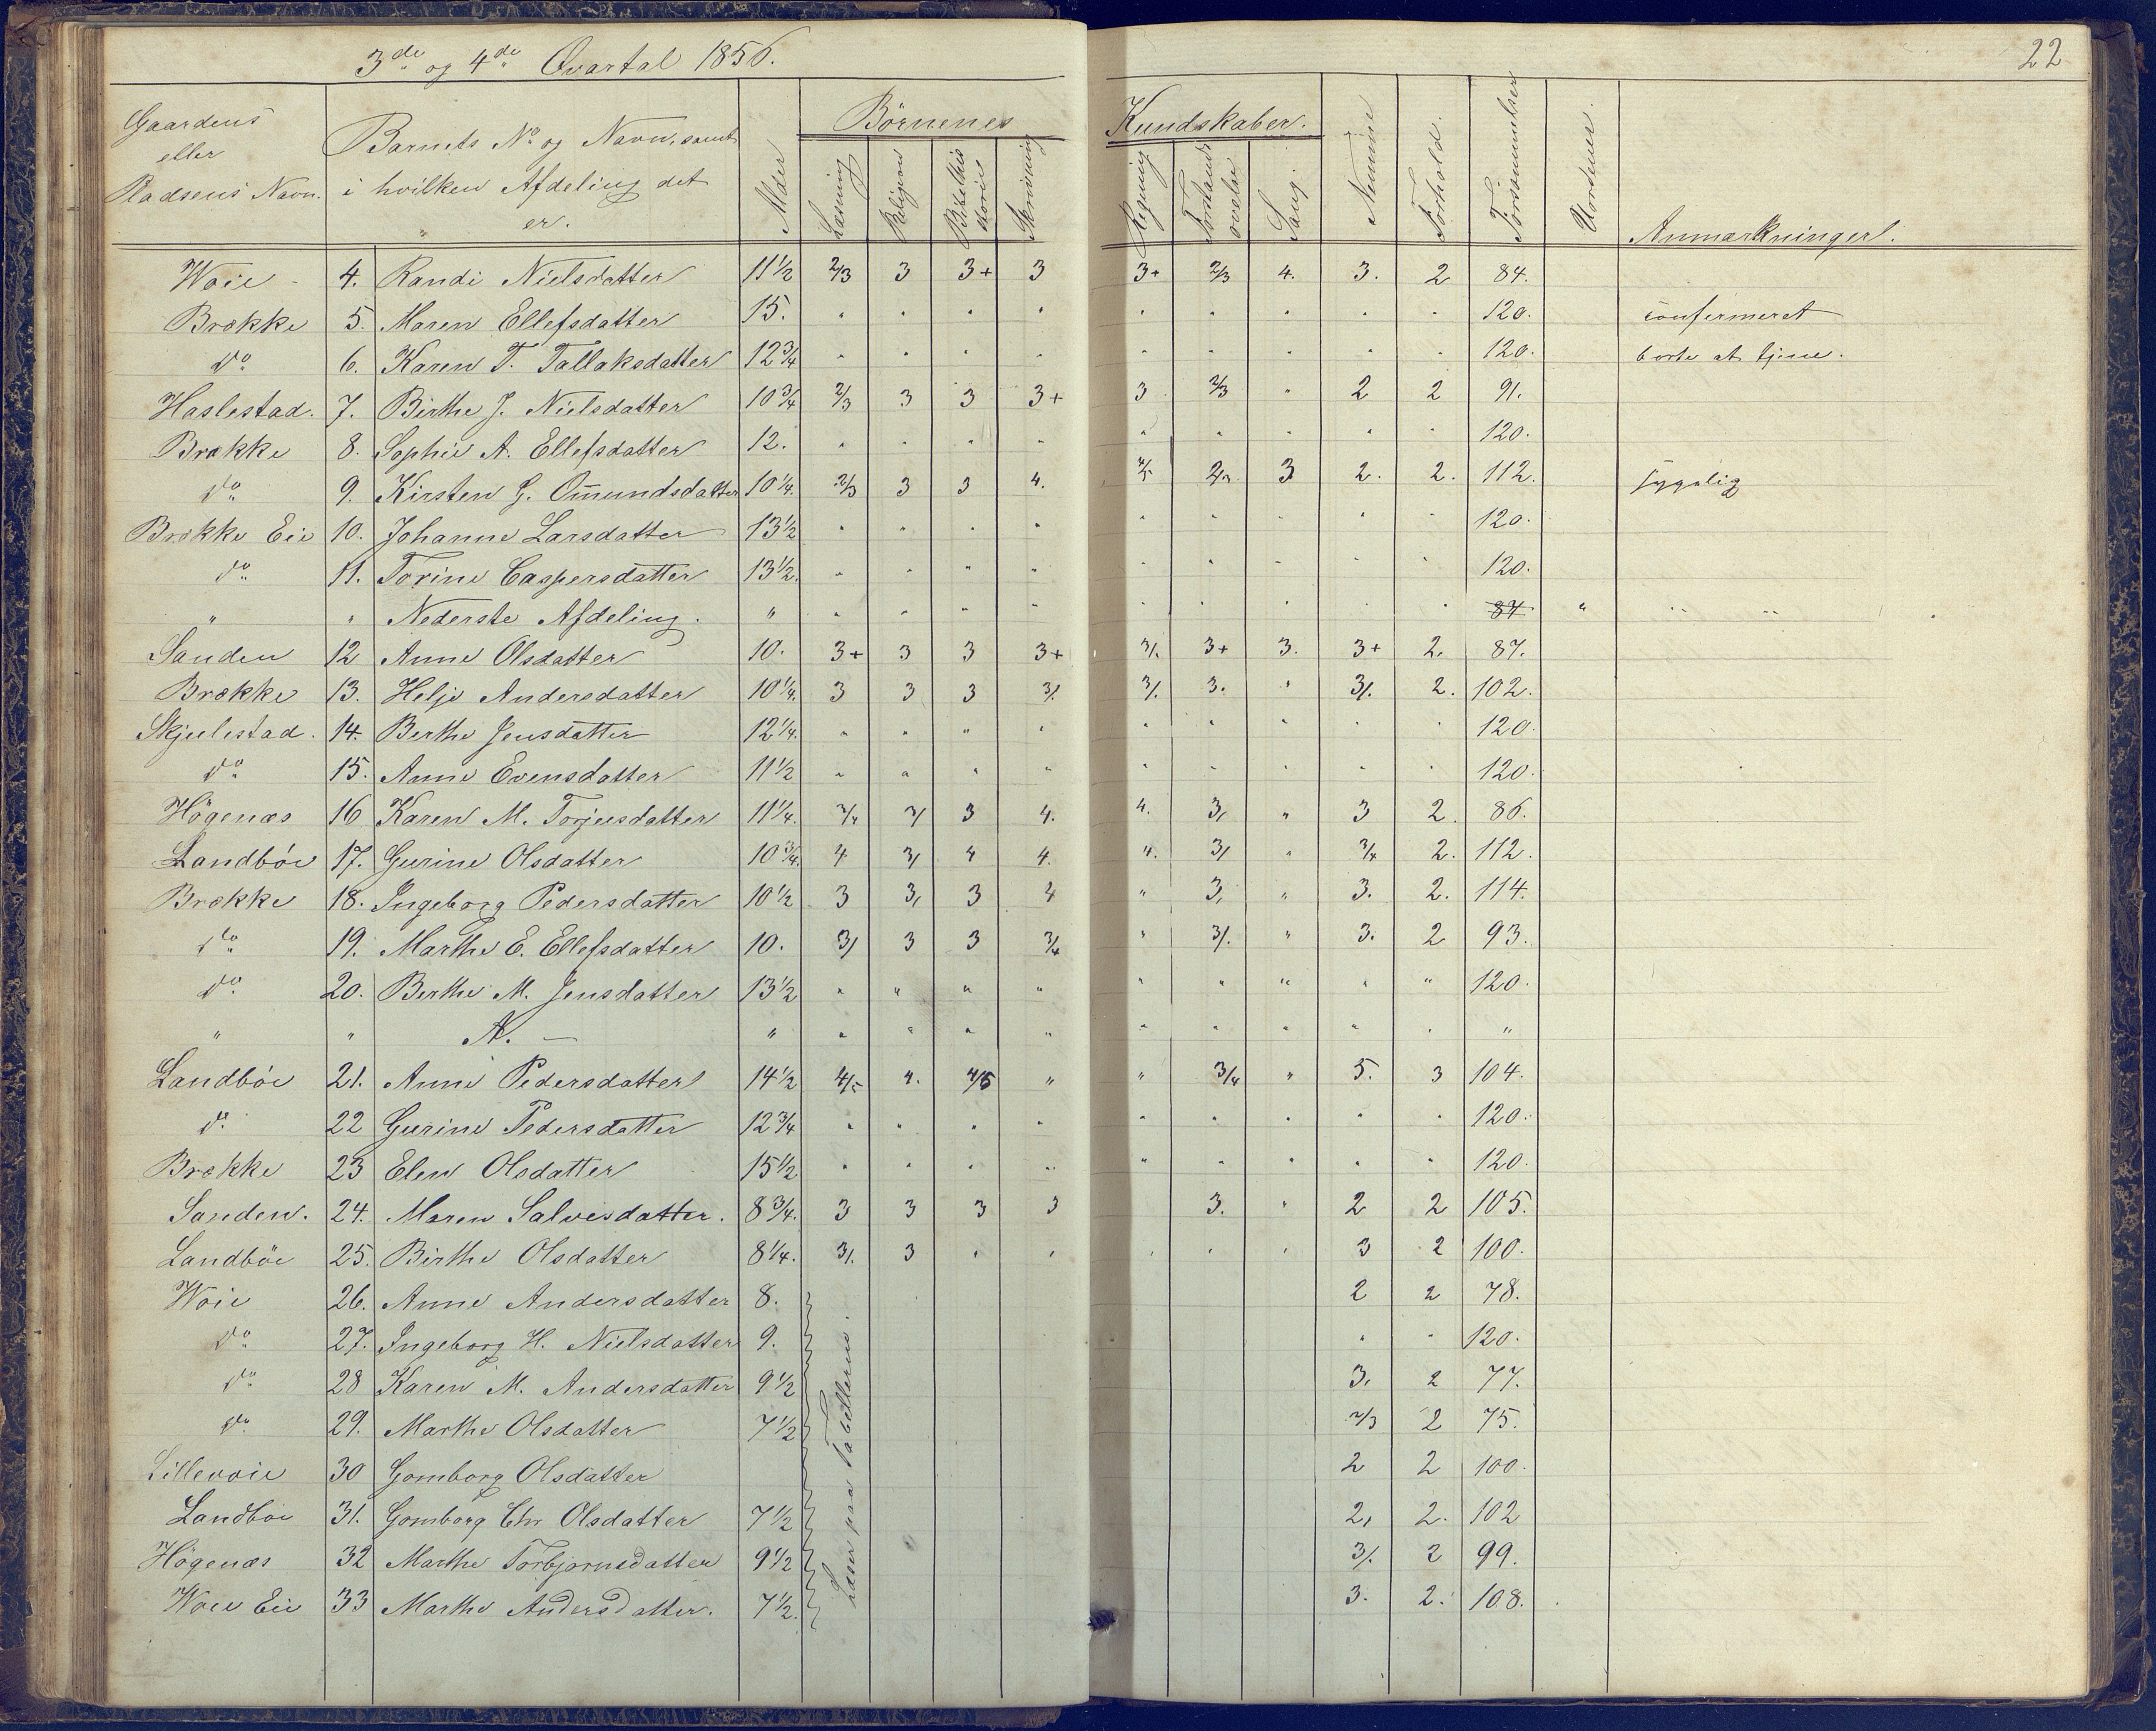 3de og 4de Qvartal 1856.
22
Gaardens eller Pladsens Navn. | Barnets No og Navn, samt i hvilken Afdeling det er. | Alder | Børnenes Kundskaber. | Læsning | Religion | Bibelhistorie | Skrivning | Regning | Forstandsøvelse | Sang | Nemme | Forhold. | Forsømmelser | Uordener. | Anmærkninger.
Woie - 4. Randi Nielsdatter 11 1/2 2/3 3 3+ 3 3+ 2/3 4. 3. 2 84.
Brække 5. Maren Ellefsdatter 15. " " " " " " " " " 120. confirmeret
do 6. Karen T. Tallaksdatter 12 3/4 " " " " " " " " " 120. borte at tjene.
Haslestad. 7. Birthe J. Nielsdatter 10 3/4 2/3 3 3 3+ 3 2/3 " 2 2 91.
Brække 8. Sophie A. Ellefsdatter 12. " " " " " " " " " 120.
do 9. Kirsten G. Omundsdatter 10 1/4. 2/3 3 3 4. 3 2. 2. 112. sygelig
Brække Eie 10. Johanne Larsdatter 13 1/2 " " " " " " " " " 120.
do 11. Torine Caspersdatter 13 1/2. " " " " " " " " " 120.
" " Nederste Afdeling. " " " " " " " " " " 84 " " "
Sanden 12 Anne Olsdatter 10. 3+ 3 3 3+ 3/. 3+ 3. 3+ 2. 87.
Brække 13. Helje Andersdatter 10 1/4. 3 3 3 3/. 3/. 3. " 3/. 2. 102.
Skjulestad. 14. Berthe Jensdatter 12 1/4. " " " " " " " " " 120.
do 15. Anne Evensdatter 11 1/2 " " " " " " " " " 120.
Högenæs 16 Karen M. Torjusdatter 11 1/4. 3/4 3/ 3 4. 4. 3, " 3 2. 86.
Landböe 17. Gurine Olsdatter 10 3/4. 4 3/ 4 4. 4. 3/ " 3/4 2. 112.
Brække 18. Ingeborg Pedersdatter 10 1/2 3 3, 3 4 " 3, " 3. 2. 114.
do 19. Marthe E. Ellefsdatter 10. 3/ 3 3 3/4 " 3/. " 3. 2 93.
do 20. Berthe M. Jensdatter 13 1/2 " " " " " " " " " 120.
" " A. — " " " " " " " " " " "
Landböe 21. Anne Pedersdatter 14 1/2 4/5 4. 4/5 " " 3/4 " 5. 3 104.
do 22 Gurine Pedersdatter 12 3/4 " " " " " " " " " 120.
Brække 23 Elen Olsdatter 15 1/2 " " " " " " " " " 120.
Sanden. 24. Maren Salvesdatter. 8 3/4. 3 3 3 3 3. " 2 2 105.
Landböe 25. Birthe Olsdatter 8 1/4. 3/. 3 " " " " " 3 2 100.
Woie 26. Anne Andersdatter 8. 2 2 78.
do 27. Ingeborg H. Nielsdatter 9. " " 120.
do 28 Karen M. Andersdatter 9 1/2 3, 2 77.
do 29. Marthe Olsdatter 7 1/2 2/3 2 75.
Lillevoie 30 Gomborg Olsdatter 2 2 100.
Landböe 31. Gomborg Chr Olsdatter 7 1/2 2, 2. 102
Högenæs 32 Marthe Torbjornsdatter 9 1/2 3/. 2 99.
Woie Eie 33 Marthe Andersdatter. 7 1/2. 3. 2. 108.
Læser paa Tabellerne.